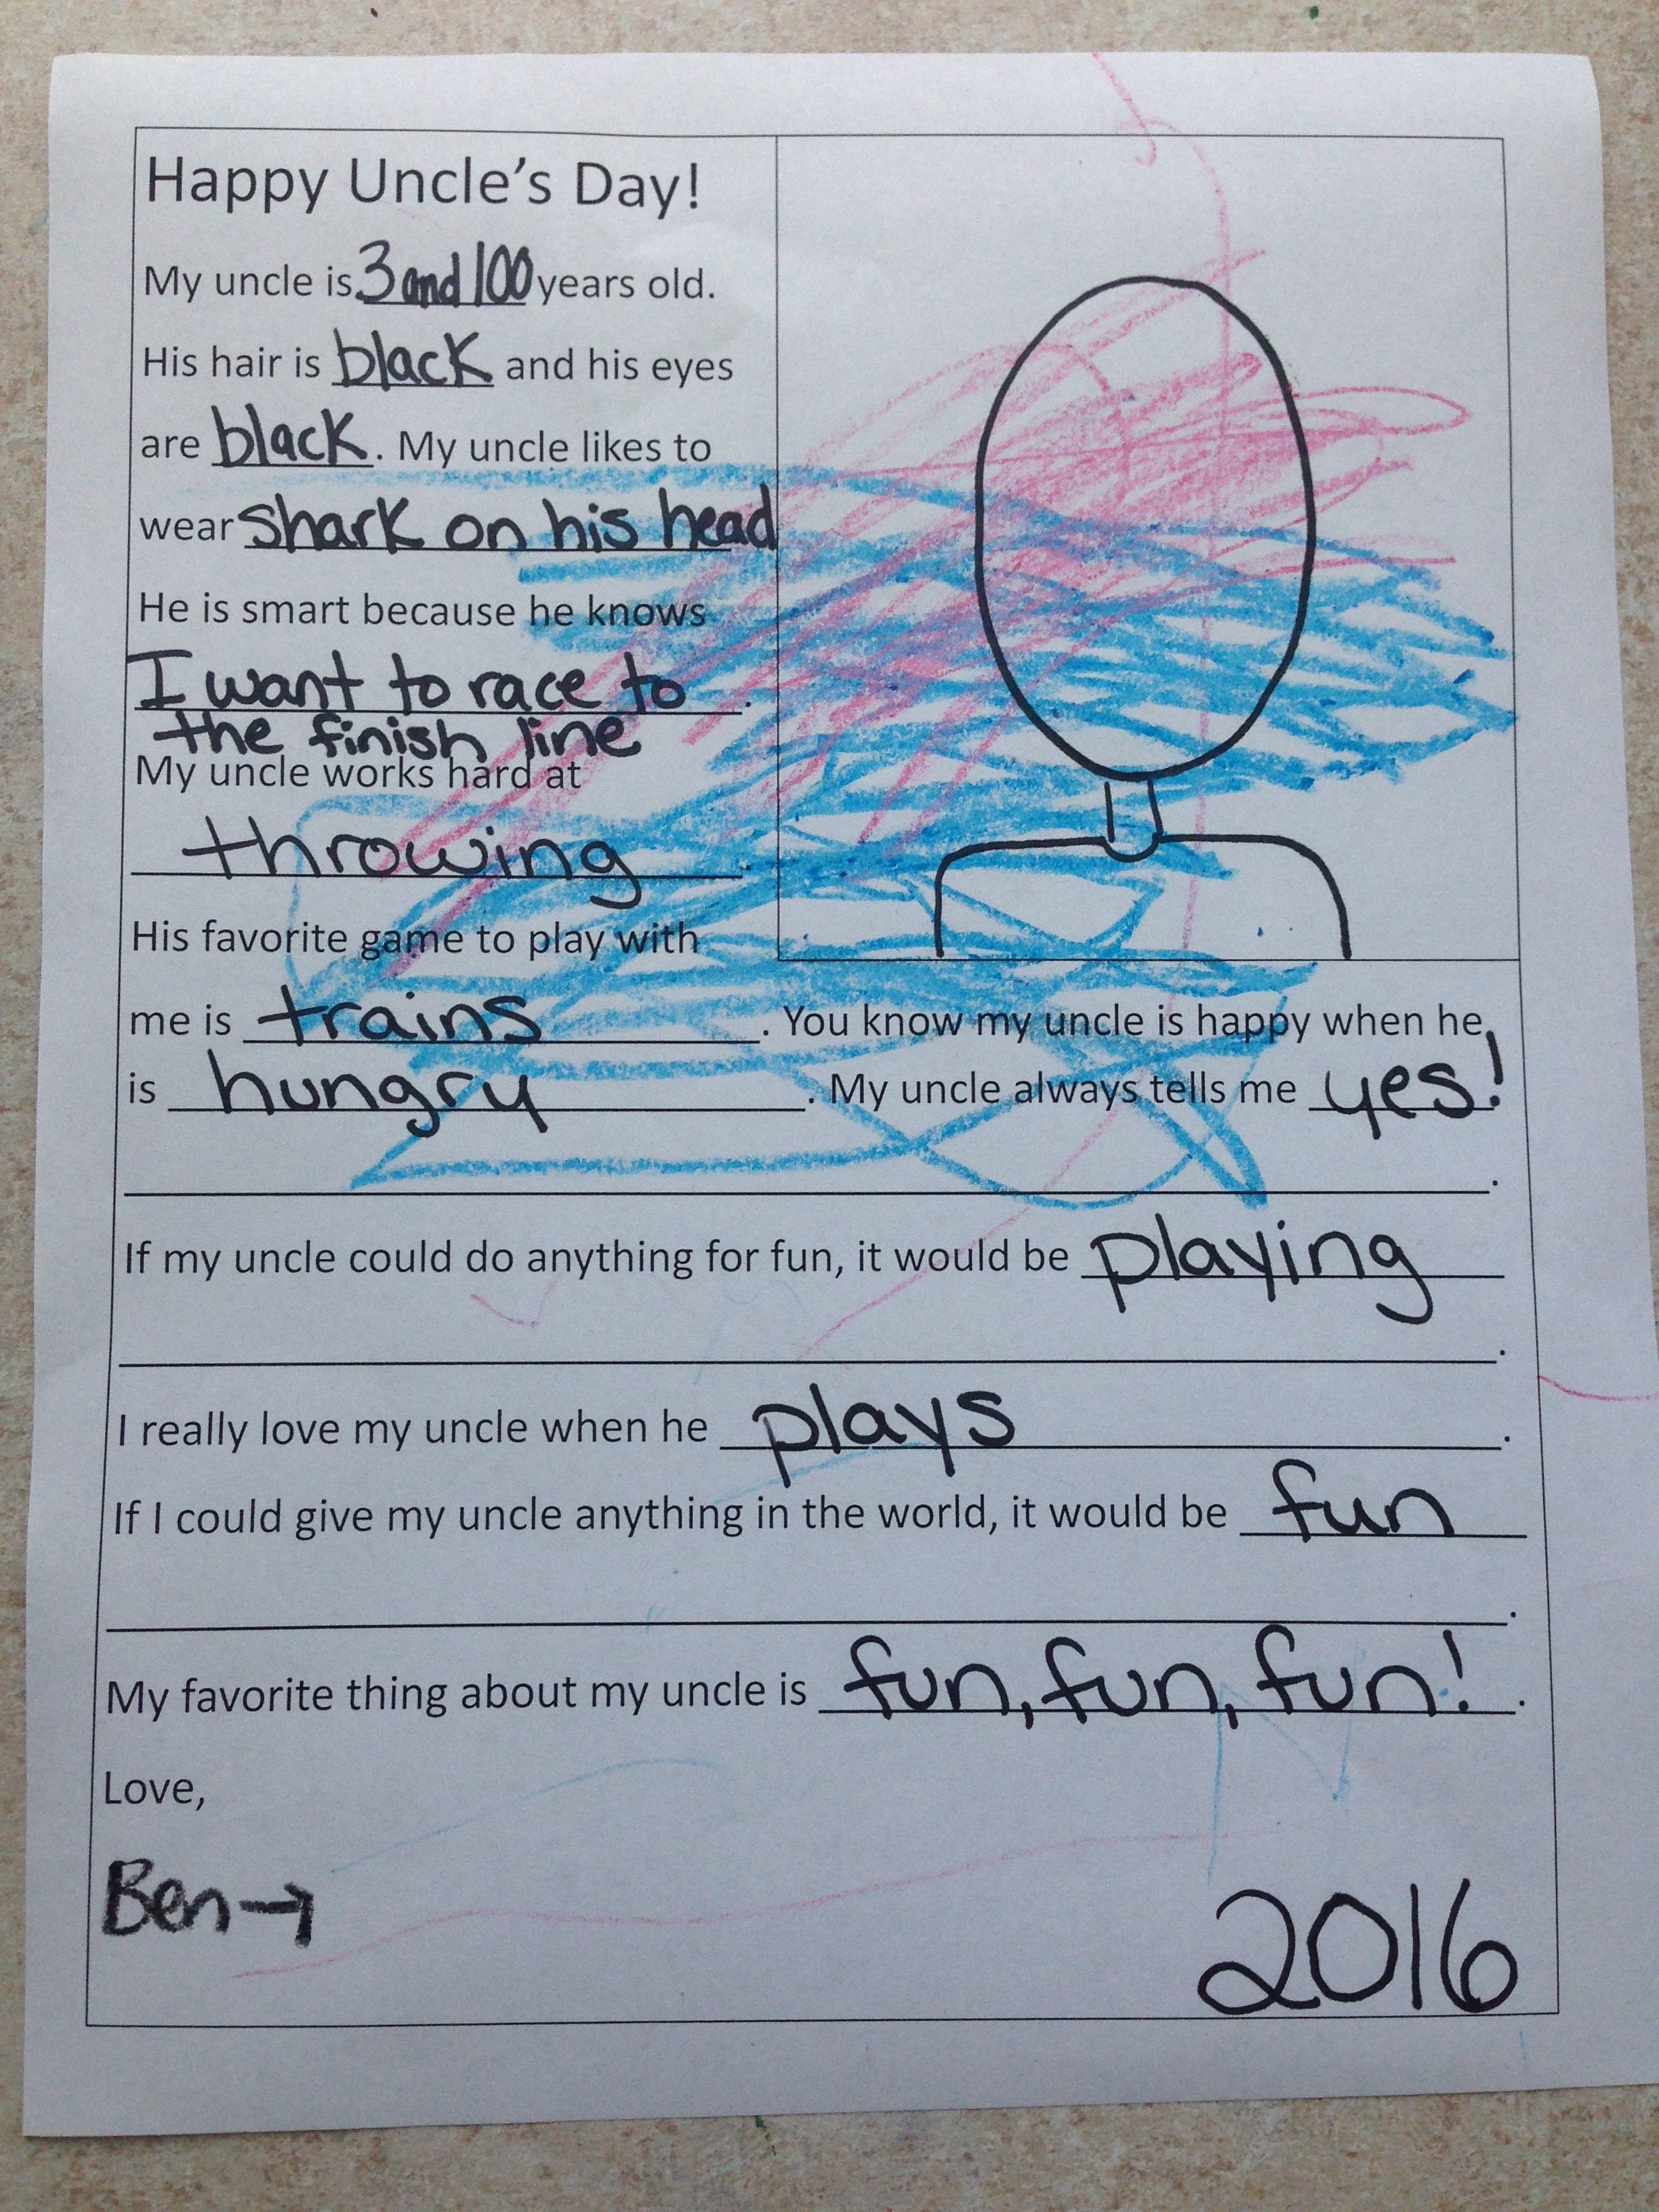 Happy Uncle's Day!
My uncle is 3 and 100 years old.
His hair is black and his eyes
are black. My uncle likes to
wear shark on his head
He is smart because he knows
I want to race to.
the finish line
My uncle works hard at
throwing.
His favorite game to play with
me is trains. You know my uncle is happy when he
is hungry. My uncle always tells me yes!
.
If my uncle could do anything for fun, it would be playing
.
I really love my uncle when he plays.
If I could give my uncle anything in the world, it would be fun
.
My favorite thing about my uncle is fun, fun, fun!.
Love,
Ben→
2016